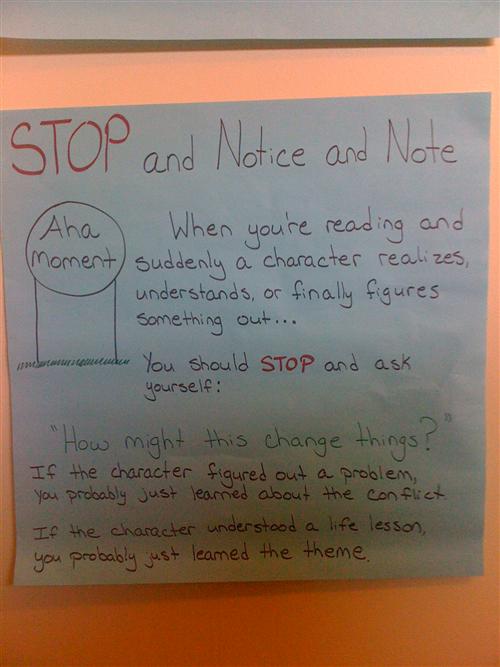 STOP and Notice and Note
Aha
Moment
When you're reading and
suddenly a character realizes,
understands, or finally figures
something out...
You should STOP and ask
yourself:
"How might this change things?"
If the character figured out a problem,
you probably just learned about the conflict
If the character understood a life lesson,
you probably just learned the theme.